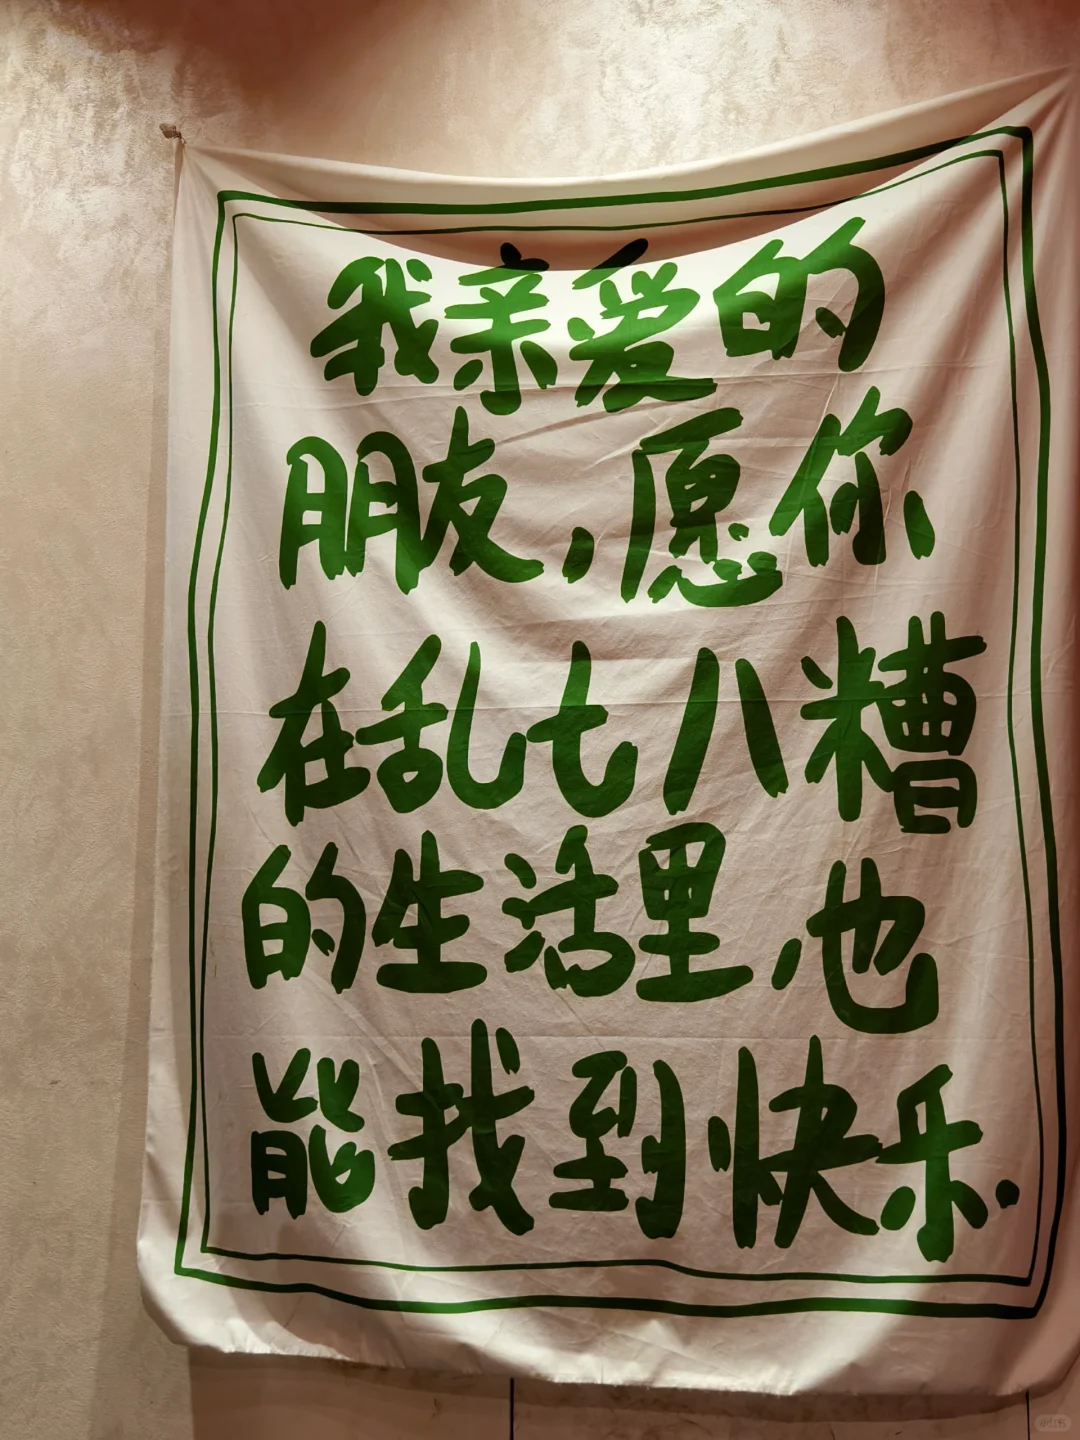 我亲爱的
朋友,愿你
在乱七八糟
的生活里,也
能找到快乐.